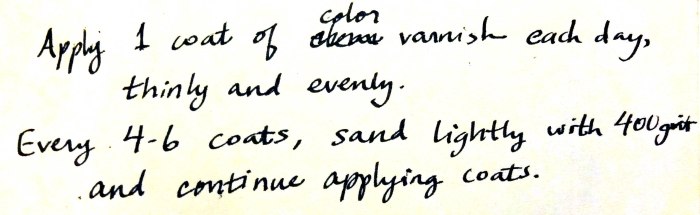 Apply 1 coat of color varnish each day,
thinly and evenly.
Every 4-6 coats, sand lightly with 400 grit
and continue applying coats.